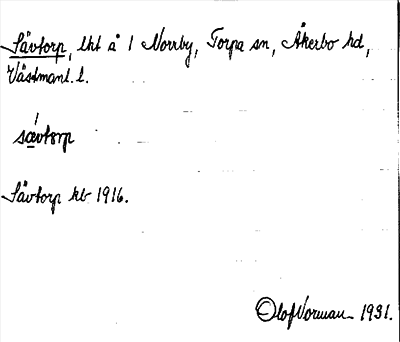 Sävtorp, lht å 1 Norrby, Torpa sn, Åkerbo hd,
Västmanl. l.
sævtorp
Sävtorp kb 1916.
Olof Norman 1931.